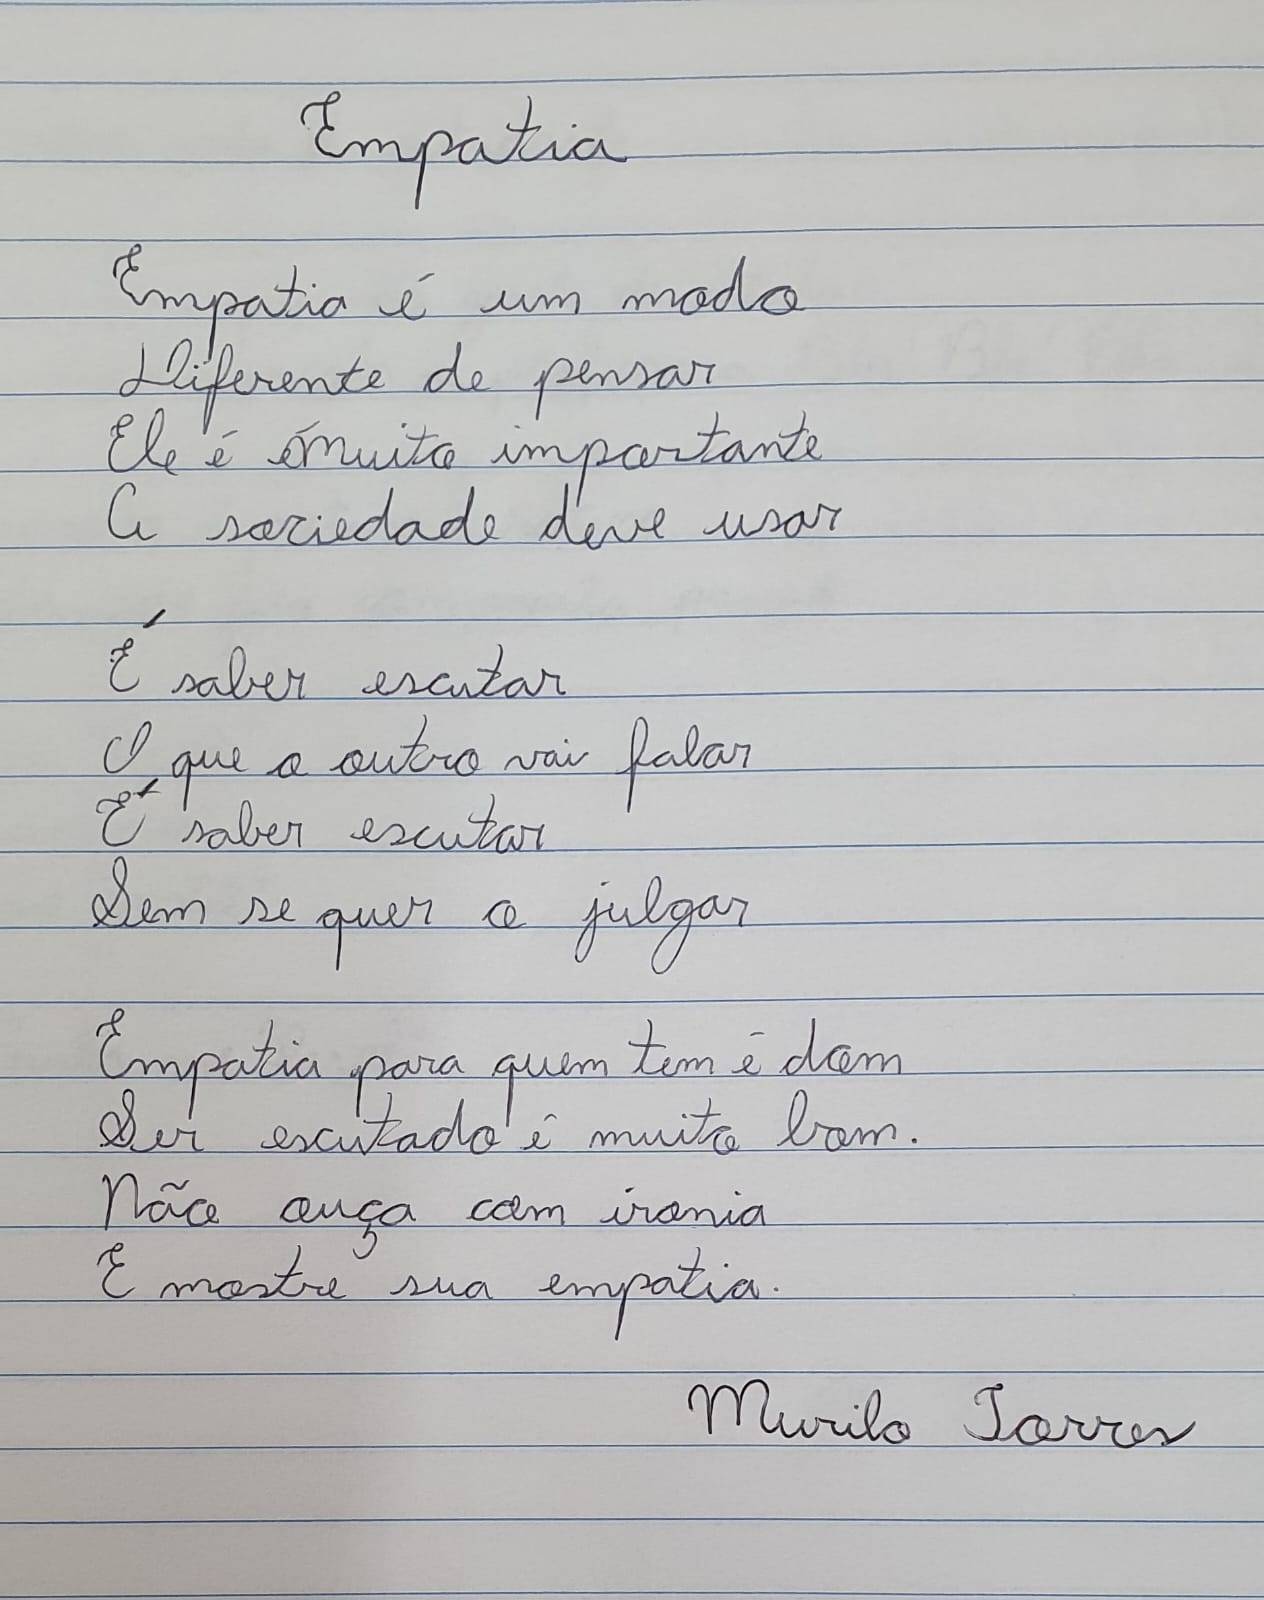 Empatia
Empatia é um modo
Diferente de pensar
Ele é muito importante
A sociedade deve usar
É saber escutar
O que o outro vai falar
É saber escutar
Sem se quer o julgar
Empatia para quem tem é dom
Ser escutado é muito bom.
Não ouça com ironia
E mostre sua empatia.
Murilo Torres